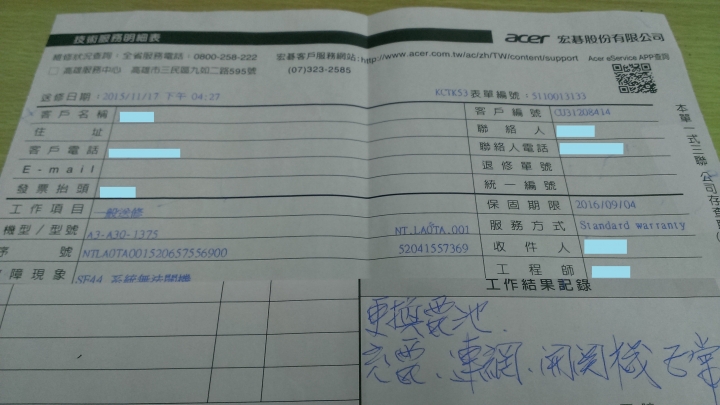 技術服務明細表
acer 宏碁股份有限公司
維修狀況查詢：全省服務電話：0800-258-222 宏碁客戶服務網站:http://www.acer.com/tw/ac/zh/TW/content/support Acer eService APP查詢
高雄服務中心 高雄市三民區九如二路595號 (07)323-2585
送修日期：2015/11/17 下午 04:27 KCTK53 表單編號：5110013133
客戶名稱 客戶編號 CU31208414
住址 聯絡人
客戶電話 聯絡人電話
E-mail 退修單號
發票抬頭 統一編號
工作項目 一般送修 保固期限 2016/09/04
機型/型號 A3-A30-1375 NT.LA0TA.001 服務方式 Standard warranty
序號 NTLA0TA001520657556900 52041557369 收件人
障現象 SF44 系統無法開機 工程師
本單一式三聯
公司存
工作結果記錄
更換電池.
充電、連網、開關機正常